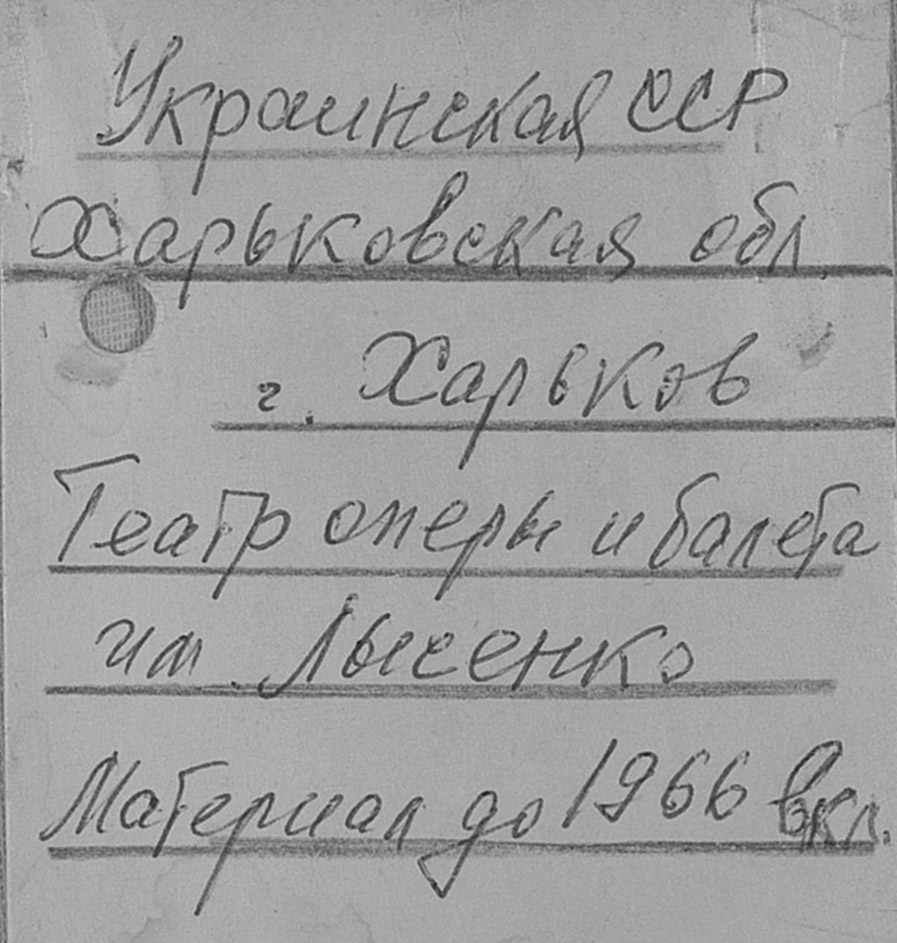 Украинская ССР
Харьковская обл.
г. Харьков
Театр оперы и балета
им. Лысенко
Материал до 1966 вкл.